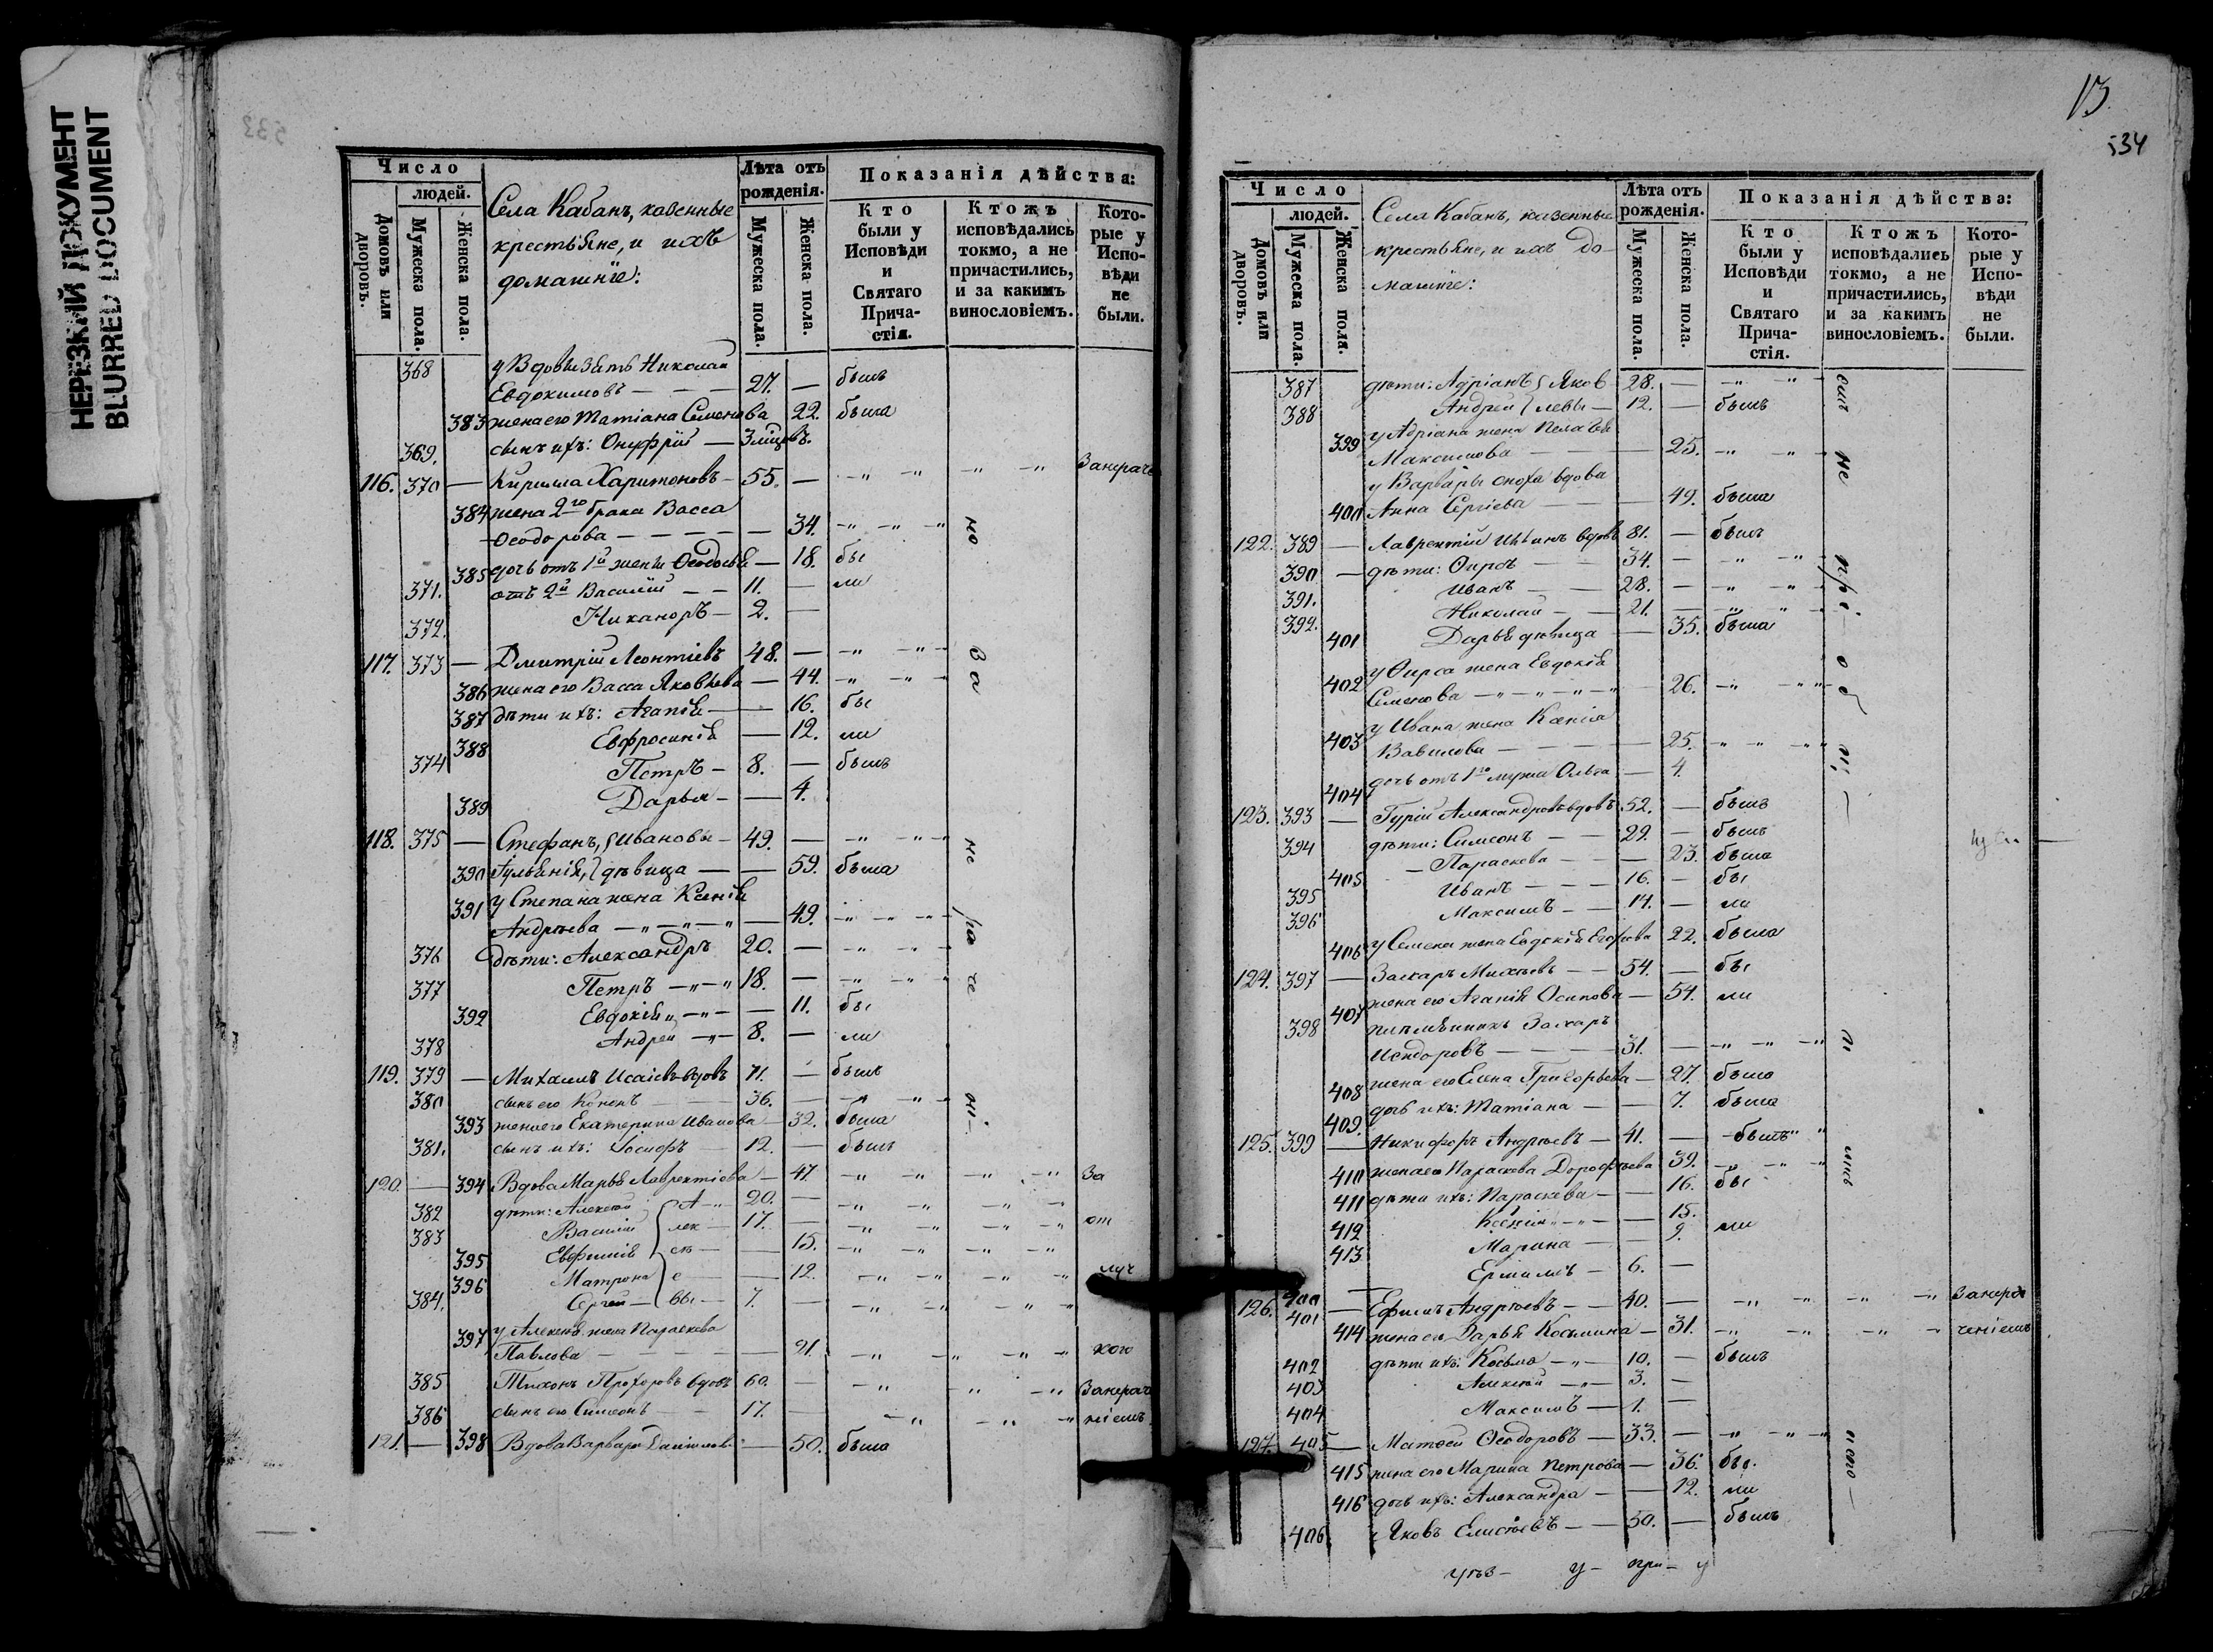 НЕРЕЗКИЙ ДОКУМЕНТ
BLURRED DOCUMENT
533
Число
людей.
Домовъ или дворовъ.
Мужеска пола.
Женска пола.
Села Кабанъ, казенные
крестьяне, и ихъ
домашніе:
Лѣта отъ рожденія.
Мужеска пола.
Женска пола.
Показанія дѣйства:
Кто были у Исповѣди и Святаго Прича-стія.
Ктожъ исповѣдались токмо, а не причастились, и за какимъ винословіемъ.
Кото-рые у Испо-вѣди не были.
368 у Вдовы зять Николай
Евдокимовъ — — — 27. — былъ
383 жена его Татіана Семенова 22. была
369. сынъ ихъ: Онуфрій — 3 мѣцовъ.
116. 370 — Кирилла Харитоновъ — 55. — -„ -„ -„ -„ Занерач
384 жена 2го брака Васса
Ѳеодорова — — — — — 34. -„ -„ -„ но
385 дочь отъ 1й жены Ѳеодосія — 18. бы
371. отъ 2й Василій — — 11. — ли
372. Никаноръ — 2. —
117. 373 — Дмитрій Леонтіевъ 48. — -„ -„ - за
386 жена его Васса Яковлева — 44. -„ -„ -
387 дѣти ихъ: Агапія — — 16. бы
388 Евфросинія — 12. ли
374 Петръ — 8. — былъ
389 Дарья — — 4.
118. 375 — Стефанъ, Ивановы — 49. — -„ -„ - не
390 Іуліанія, дѣвица — — 59. была
391 у Степана жена Ксенія
Андрѣева -„-„-„ — 49. -„ -„ -„ ра
376 дѣти: Александръ 20. — -„ -„ -
377 Петръ -„-„ 18. — -„ -„ -„ че
392 Евдокія „-„- — 11. бы
378 Андрей -„- 8. — ли
119. 379 — Михаилъ Исаіевъ вдовъ 71. — былъ
380 сынъ его Кононъ — — 36. — -„ -„ - ні-
393 жена его Екатерина Иванова — 32. была
381. сынъ ихъ: Іосифъ — 12. — былъ
120. — 394 Вдова Марья Лаврентіева — 47. -„ -„ -„ -„ За
382 дѣти: Алексѣй А-„- 20. — -„ -„ -„ -
383 Василій лек — 17. — -„ -„ -„ -„ от
395 Евфимія сѣ — — 15. -„ -„ -„ -„
396 Матрона е — 12. -„ -„ -„ -„ луч
384. Сергей — вы — 7. — -„ -„ -„ -„
397 у Алексѣя жена Параскева
Павлова — — — — — 21. -„ -„ -„ -„ кою
385 Тихонъ Прохоровъ вдовъ 60. — -„ -„ -„ Занерач
386 сынъ его Симеонъ — — 17. — -„ -„ -„ ніемъ
121. — 398 Вдова Варвара Даніилов. — 50. была
13
534
Число
людей.
Домовъ или дворовъ.
Мужеска пола.
Женска пола.
Села Кабанъ, казенные
крестьяне, и ихъ до-
машніе:
Лѣта отъ рожденія.
Мужеска пола.
Женска пола.
Показанія дѣйства:
Кто были у Исповѣди и Святаго Прича-стія.
Ктожъ исповѣдались токмо, а не причастились, и за какимъ винословіемъ.
Кото-рые у Испо-вѣди не были.
387 дѣти: Адріанъ Яков 28. — -„ -„ -
388 Андрей левы — 12. — былъ
399 у Адріана жена Пелагія
Максимова — — 25. -„ -„ - не
у Варвары сноха вдова
400 Анна Сергіева — — — 49. была
122. 389 — Лаврентій вдовъ 81. — былъ
390 — дѣти: Ѳирсъ — — 34. — -„ -„ - прі-
391. Иванъ — — 28. — -„ -„ -
392. Николай — — 21. — -„ -„ -
401 Дарья дѣвица — 35. была
402 у Ѳирса жена Евдокія
Семенова -„-„-„-„ — 26. -„ -„„ - об
403 у Ивана жена Ксенія
Вавилова — — — — 25. -„ -„ -„„
404 дочь отъ 1го мужа Ольга — 4. щ: —
123. 393 — Гурій Александровъ вдовъ 52. — былъ
394 дѣти: Симеонъ — — 29. — былъ
405 — Параскева — — — 23. была
395 Иванъ — — — 16. — бы
396 Максимъ — — 14. — ли
406 у Семена жена Евдокія Егорова 22. была
124. 397 — Захаръ Михѣевъ — — 54. — бы
407 жена его Агапія Осипова — 54. ли
398 племянникъ Захаръ
Исидоровъ — — — — 31. — -„ -„ -„
408 жена его Елена Григорьева — 27. была
409. дочь ихъ: Татіана — — 7. была
125. 399 — Никифоръ Андрѣевъ — 41. — -былъ„ „
410 жена его Параскева Дороѳеева 39. -„ -„ -„
411 дѣти ихъ: Параскева — — 16. бы
412 Ксенія „-„- — 15.
413 Марина — — 9. ли
400 Ермилъ — 6. —
126. 401 — Ефимъ Андрѣевъ — — 40. — -„ -„ -„ -„ Занера
414 жена его Дарья Косьмина — 31. -„ -„ -„ - ченіемъ
402 дѣти ихъ: Косьма -„- 10. — былъ
403 Алексѣй -„- 3. —
404 Максимъ — 1. —
127. 405 — Матѳей Ѳеодоровъ — 33. — -„ -„ -„
415 жена его Марина Петрова — 36. бы.
416 дочь ихъ: Александра — — 12. ли
406 Яковъ Елисѣевъ — — 50. — былъ